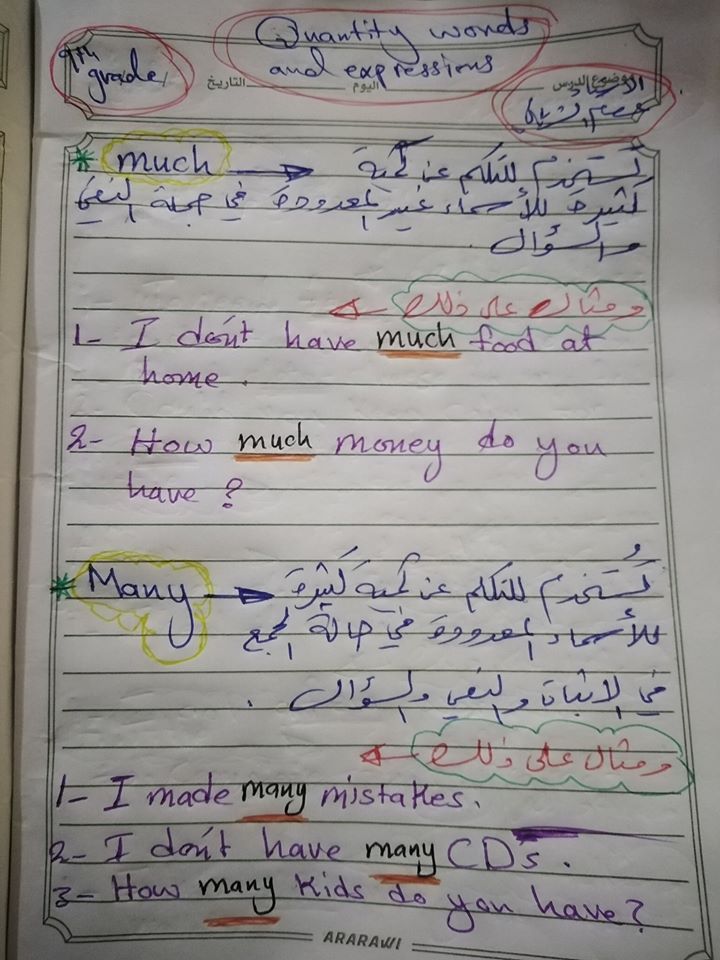 Quantity words
and expressions
9th
grade
موضوع الدرس
اليوم
التاريخ
الأستاذ
* much
تُستخدم للتكلم عن كمية
كثيرة للأسماء غير المعدودة في جملة النفي
والسؤال.
ومثال على ذلك
1- I don't have much food at
home.
2- How much money do you
have?
* Many
تُستخدم للتكلم عن كمية كَثيرة
للأسماء المعدودة في حالة الجمع
في الاثبات والنفي والسؤال.
ومثال على ذلك
1- I made many mistakes.
2- I don't have many CD's.
3- How many kids do you have?
ARARAWI